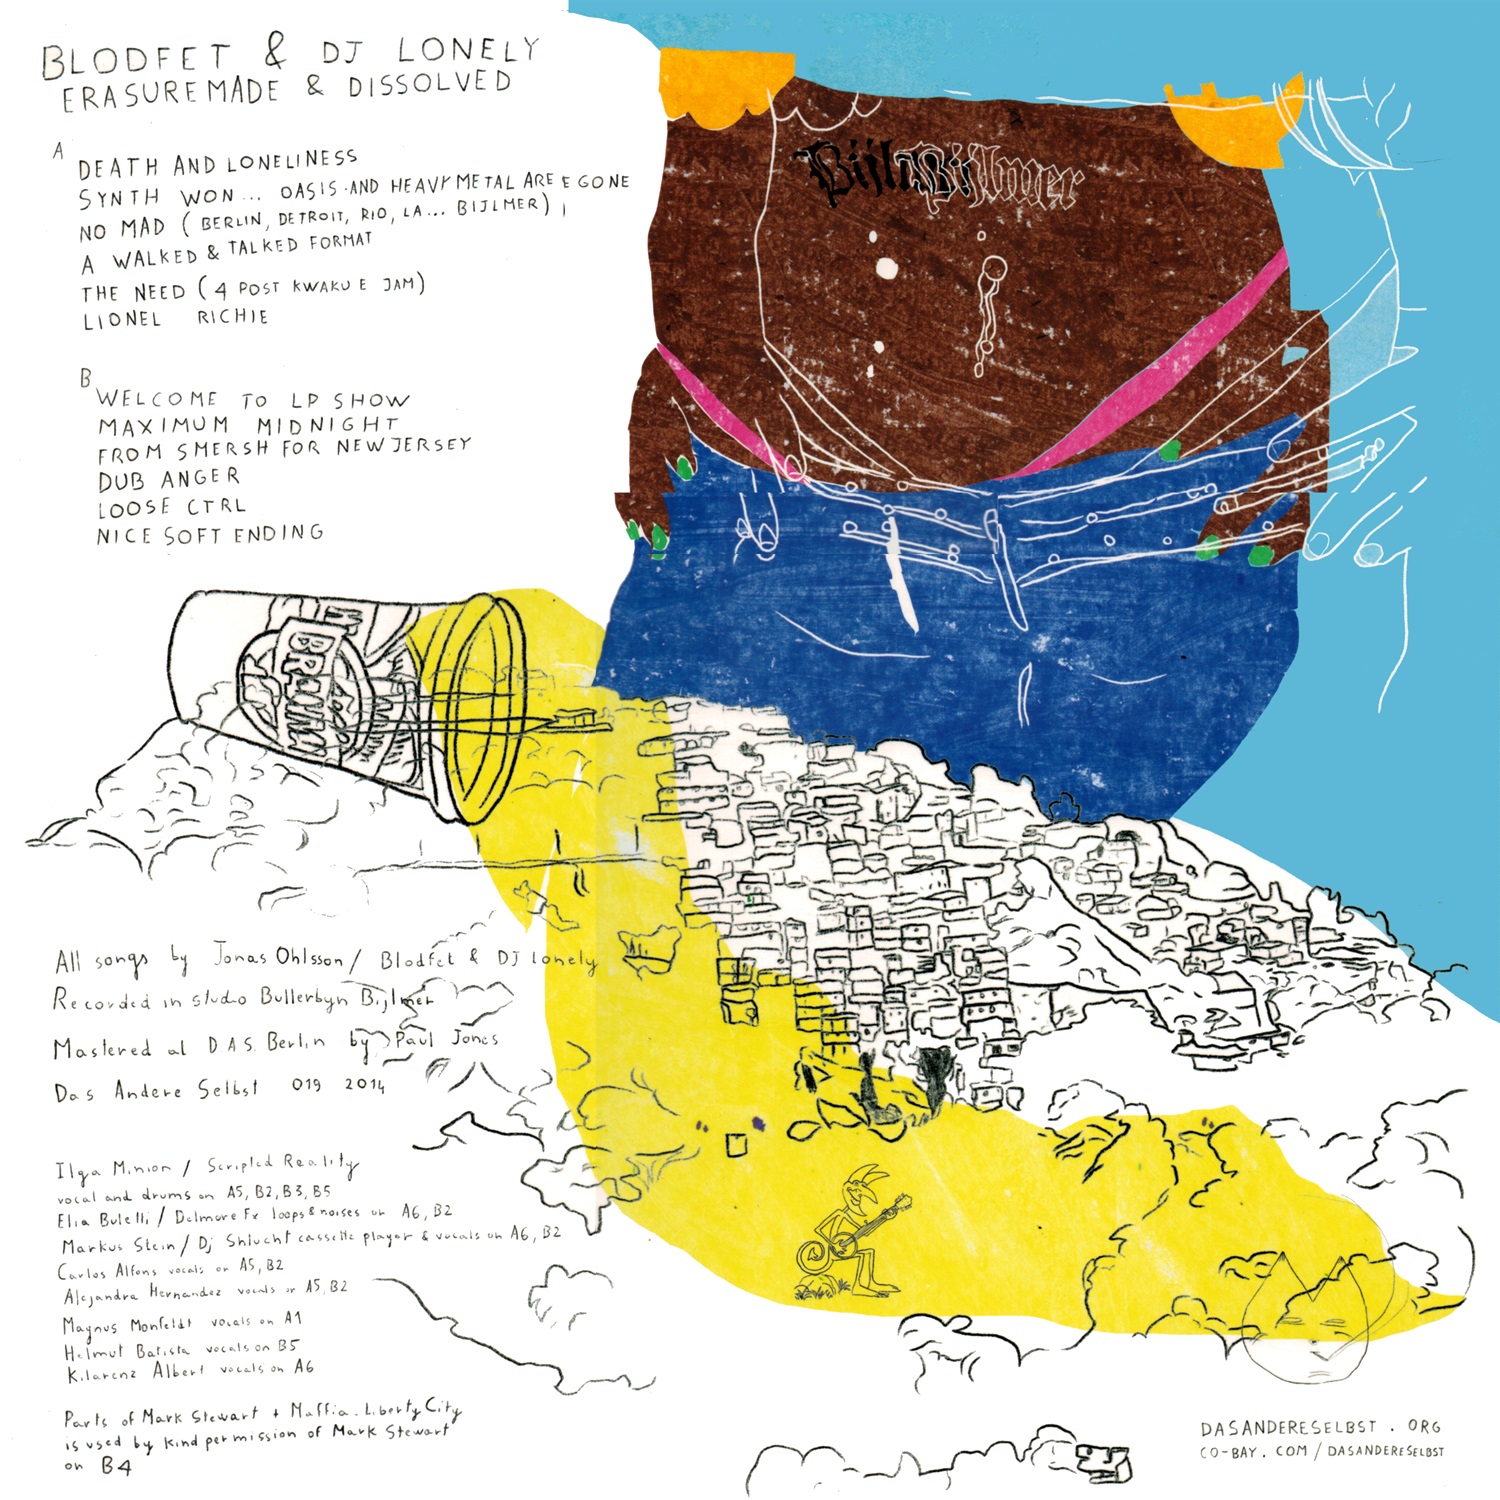 BLODFET & DJ LONELY
ERASUREMADE & DISSOLVED
A
DEATH AND LONELINESS
SYNTH WON... OASIS AND HEAVY METAL ARE E GONE
NO MAD (BERLIN, DETROIT, RIO, LA... BIJLMER)
A WALKED & TALKED FORMAT
THE NEED (4 POST KWAKU E JAM)
LIONEL RICHIE
B
WELCOME TO LP SHOW
MAXIMUM MIDNIGHT
FROM SMERSH FOR NEW JERSEY
DUB ANGER
LOOSE CTRL
NICE SOFT ENDING
Bijlmer
BROWN
All songs by Jonas Ohlsson / Blodfet & DJ lonely
Recorded in studio Bullerbyn Bijlmer
Mastered at D A S. Berlin by Paul Jones
Das Andere Selbst 019 2014
Ilga Minior / Scripted Reality
vocal and drums on A5, B2, B3, B5
Elia Buletti / Delmore Fx loops & noises on A6, B2
Markus Stein / Dj Shlucht cassette player & vocals on A6, B2
Carlos Alfons vocals on A5, B2
Alejandra Hernandez vocals on A5, B2
Magnus Monfeldt vocals on A1
Helmut Batista vocals on B5
Kilarenz Albert vocals on A6
Parts of Mark Stewart + Maffia. Liberty City
is used by kind permission of Mark Stewart
on B4
DASANDERESELBST . ORG
CO-BAY. COM / DASANDERESELBST